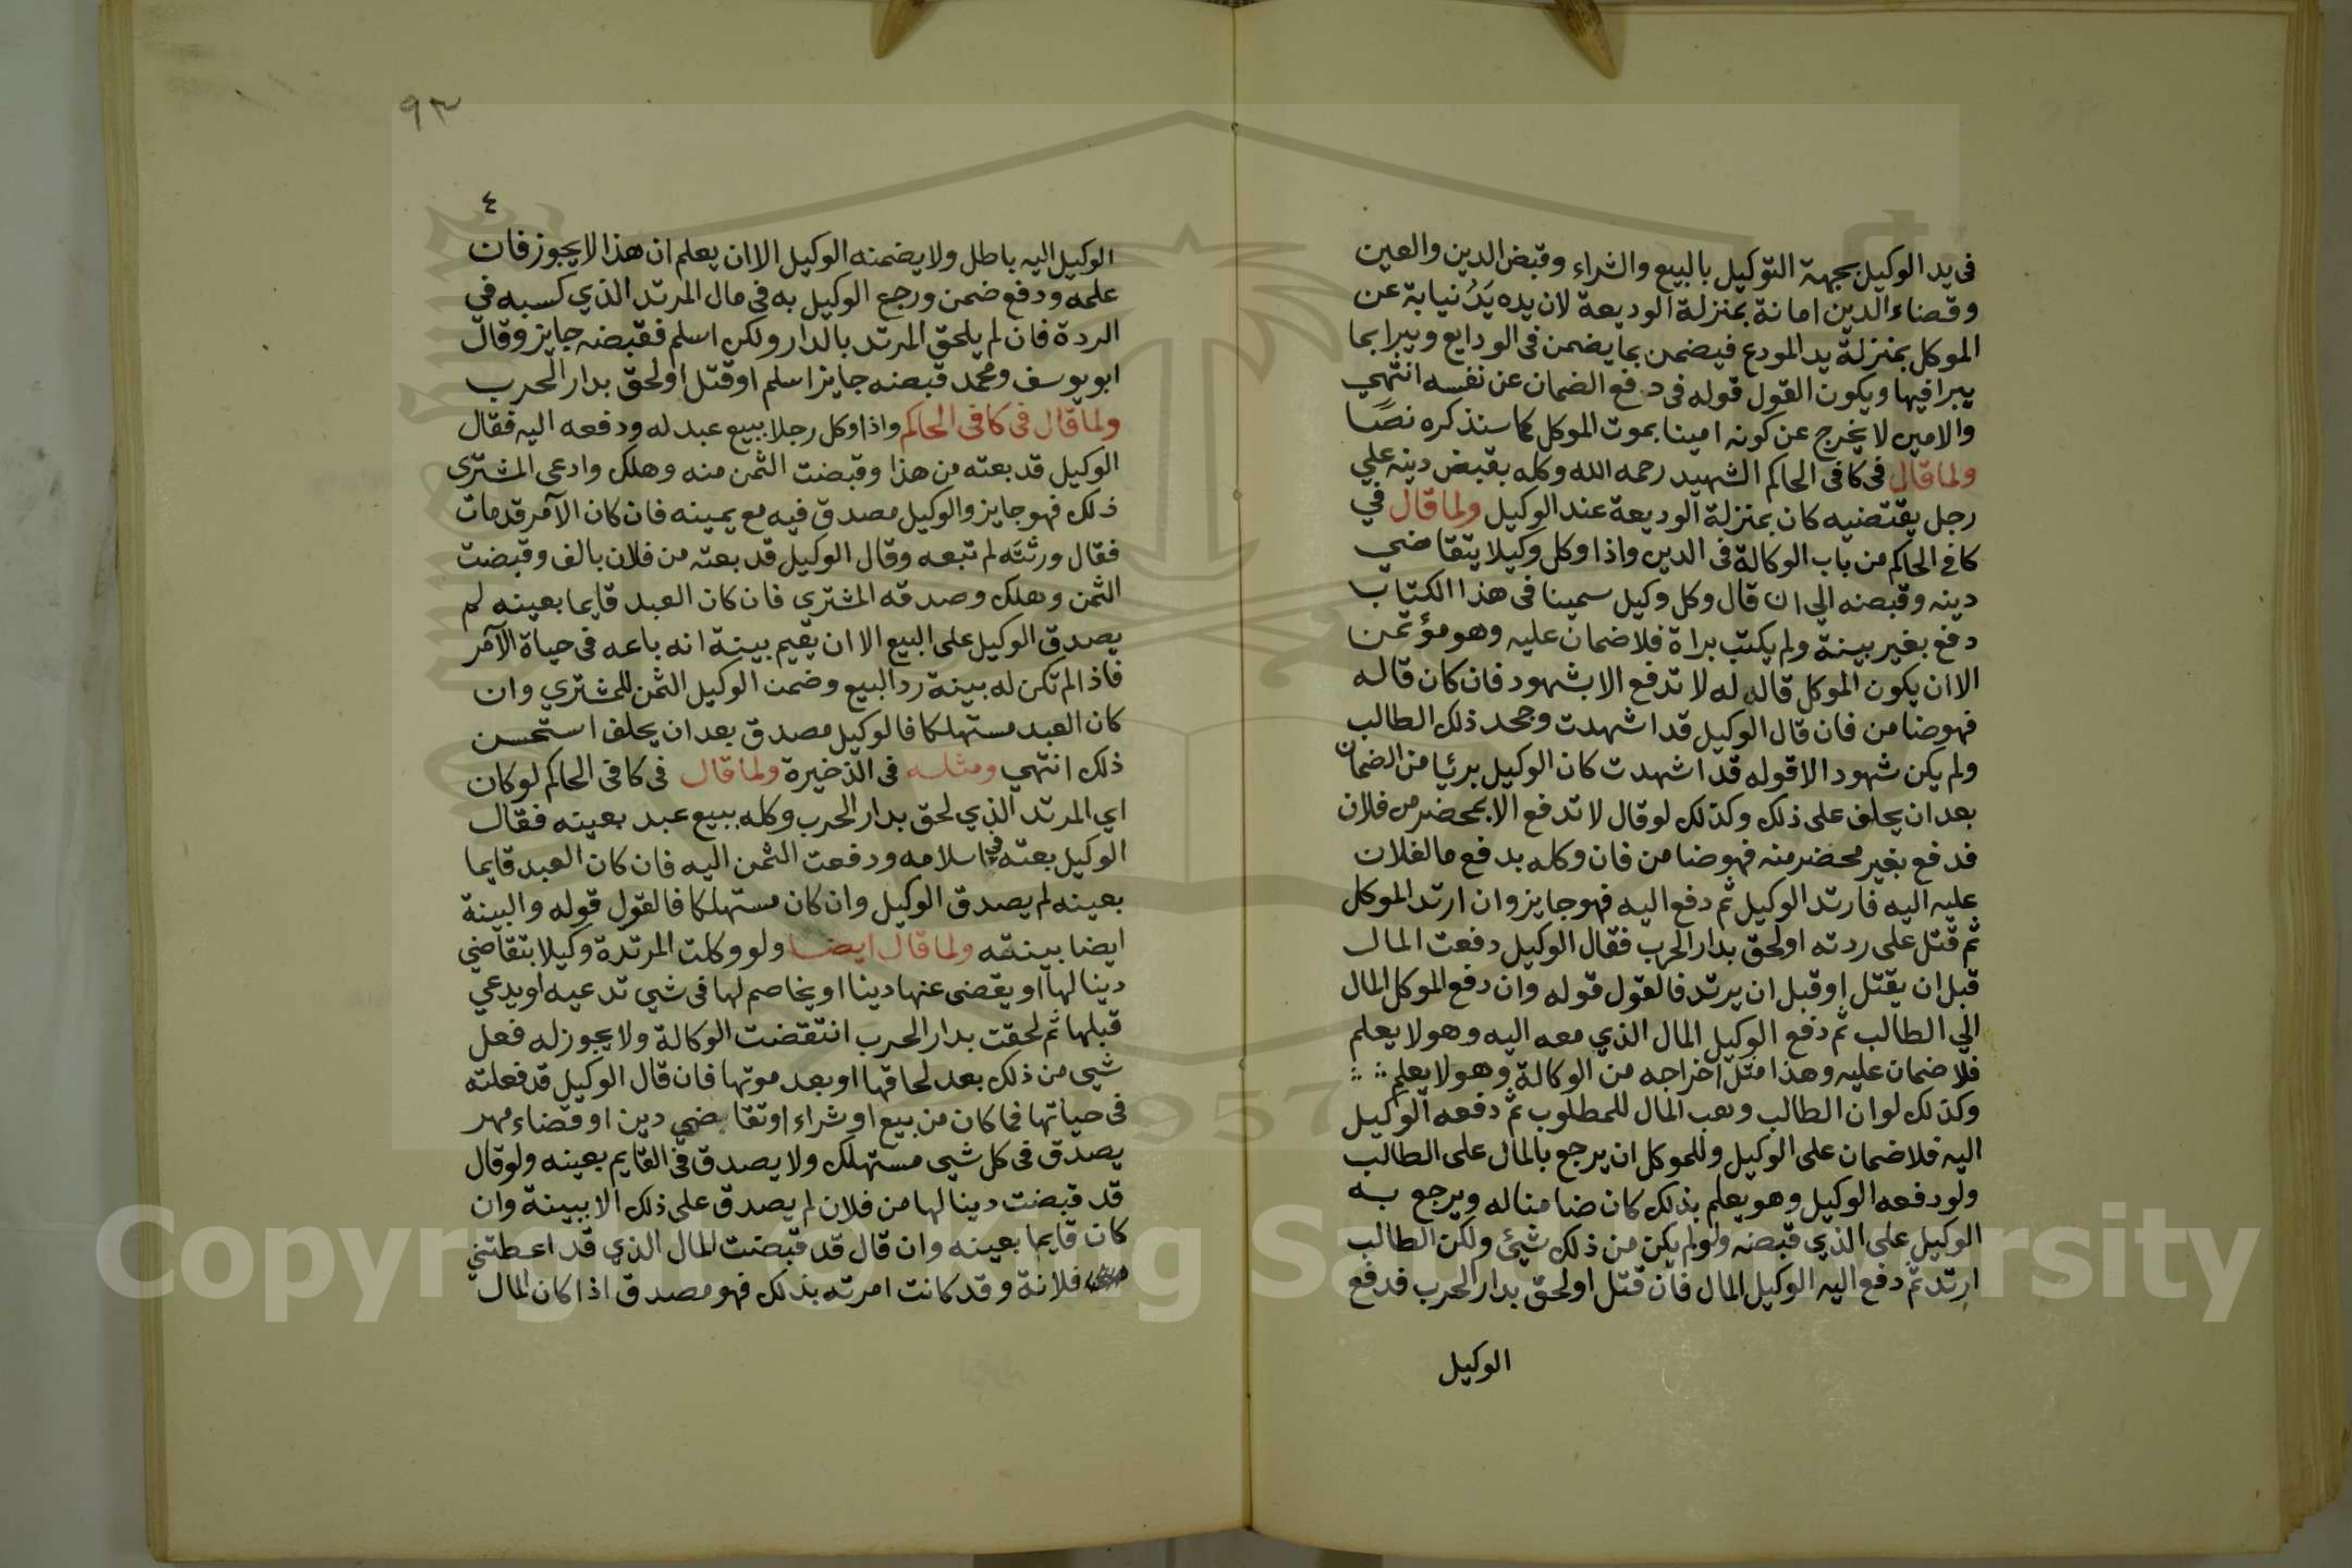 فى يد الوكيل بجهة التوكيل بالبيع والشراء وقبض الدين والعين
وقضاء الدين امانة بمنزلة الوديعة لان يده يَدُ نيابة عن
الموكل بمنزلة يد المودع فيضمن بما يضمن فى الودايع ويبرا بما
يبرا فيها ويكون القول قوله فى دفع الضمان عن نفسه انتهي
والامين لا يخرج عن كونه امينا بموت الموكل كما سنذكره نصًا
ولما قال فى كافى الحاكم الشهيد رحمه الله وكله بقبض دينه علي
رجل يقتضيه كان بمنزلة الوديعة عند الوكيل ولما قال في
كافي الحاكم من باب الوكالة فى الدين واذا وكل وكيلا يتقاضي
دينه وقبضه الي ان قال وكل وكيل سمينا فى هذا الكتاب
دفع بغير بينة ولم يكتب براة فلا ضمان عليه وهو مؤتمن
الا ان يكون الموكل قال له لا تدفع الا بشهود فان كان قاله
فهو ضامن فان قال الوكيل قد اشهدت وجحد ذلك الطالب
ولم يكن شهود الا قوله قد اشهدت كان الوكيل بريًا من الضمان
بعد ان يحلف على ذلك وكذلك لو قال لا تدفع الا بمحضر من فلان
فدفع بغير محضر منه فهو ضامن فان وكله بدفع ما لفلان
عليه اليه فارتد الوكيل ثم دفع اليه فهو جايز وان ارتد الموكل
ثم قتل على ردته او لحق بدار الحرب فقال الوكيل دفعت المال
قبل ان يقتل او قبل ان يرتد فالقول قوله وان دفع الموكل المال
الي الطالب ثم دفع الوكيل المال الذي معه اليه وهو لا يعلم
فلا ضمان عليه وهذا مثل اخراجه من الوكالة وهو لا يعلم
وكذلك لو ان الطالب وهب المال للمطلوب ثم دفعه الوكيل
اليه فلا ضمان على الوكيل وللموكل ان يرجع بالمال على الطالب
ولو دفعه الوكيل وهو يعلم بذلك كان ضامنا له ويرجع به
الوكيل على الذي قبضه ولو لم يكن من ذلك شيئ ولكن الطالب
ارتد ثم دفع اليه الوكيل المال فان قتل او لحق بدار الحرب فدفع
الوكيل
٩٣
٤
الوكيل اليه باطل ولا يضمنه الوكيل الا ان يعلم ان هذا لا يجوز فان
علمه ودفع ضمن ورجع الوكيل به فى مال المرتد الذي كسبه في
الردة فان لم يلحق المرتد بالدار ولكن اسلم فقبضه جايز وقال
ابو يوسف ومحمد قبضه جايز اسلم او قتل او لحق بدار الحرب
ولما قال فى كافى الحاكم واذا وكل رجلا ببيع عبد له ودفعه اليه فقال
الوكيل قد بعته من هذا وقبضت الثمن منه وهلك وادعى المشترى
ذلك فهو جايز والوكيل مصدق فيه مع يمينه فان كان الآمر قد مات
فقال ورثته لم تبعه وقال الوكيل قد بعته من فلان بالف وقبضت
الثمن وهلك وصدقه المشتري فان كان العبد قايما بعينه لم
يصدق الوكيل على البيع الا ان يقيم بينة انه باعه فى حياة الآمر
فاذا لم تكن له بينة رد البيع وضمن الوكيل الثمن للمشتري وان
كان العبد مستهلكا فالوكيل مصدق بعد ان يحلف استحسن
ذلك انتهي ومثله فى الذخيرة ولما قال فى كافى الحاكم لو كان
اي المرتد الذي لحق بدار الحرب وكله ببيع عبد بعينه فقال
الوكيل بعته في اسلامه ودفعت الثمن اليه فان كان العبد قايما
بعينه لم يصدق الوكيل وان كان مستهلكا فالقول قوله والبينة
ايضا بينته ولما قال ايضا ولو وكلت المرتدة وكيلا بتقاضي
دينا لها او يقضى عنها دينا او يخاصم لها فى شي تدعيه او يدعي
قبلها ثم لحقت بدار الحرب انتقضت الوكالة ولا يجوز له فعل
شي من ذلك بعد لحاقها او بعد موتها فان قال الوكيل قد فعلته
فى حياتها فما كان من بيع او شراء او تقاضي دين او قضاء مهر
يصدق فى كل شي مستهلك ولا يصدق فى القايم بعينه ولو قال
قد قبضت دينا لها من فلان لم يصدق على ذلك الا ببينة وان
كان قايما بعينه وان قال قد قبضت المال الذي قد اعطتني
فلانة وقد كانت امرته بذلك فهو مصدق اذا كان المال
1957
Copyright © King Saud University